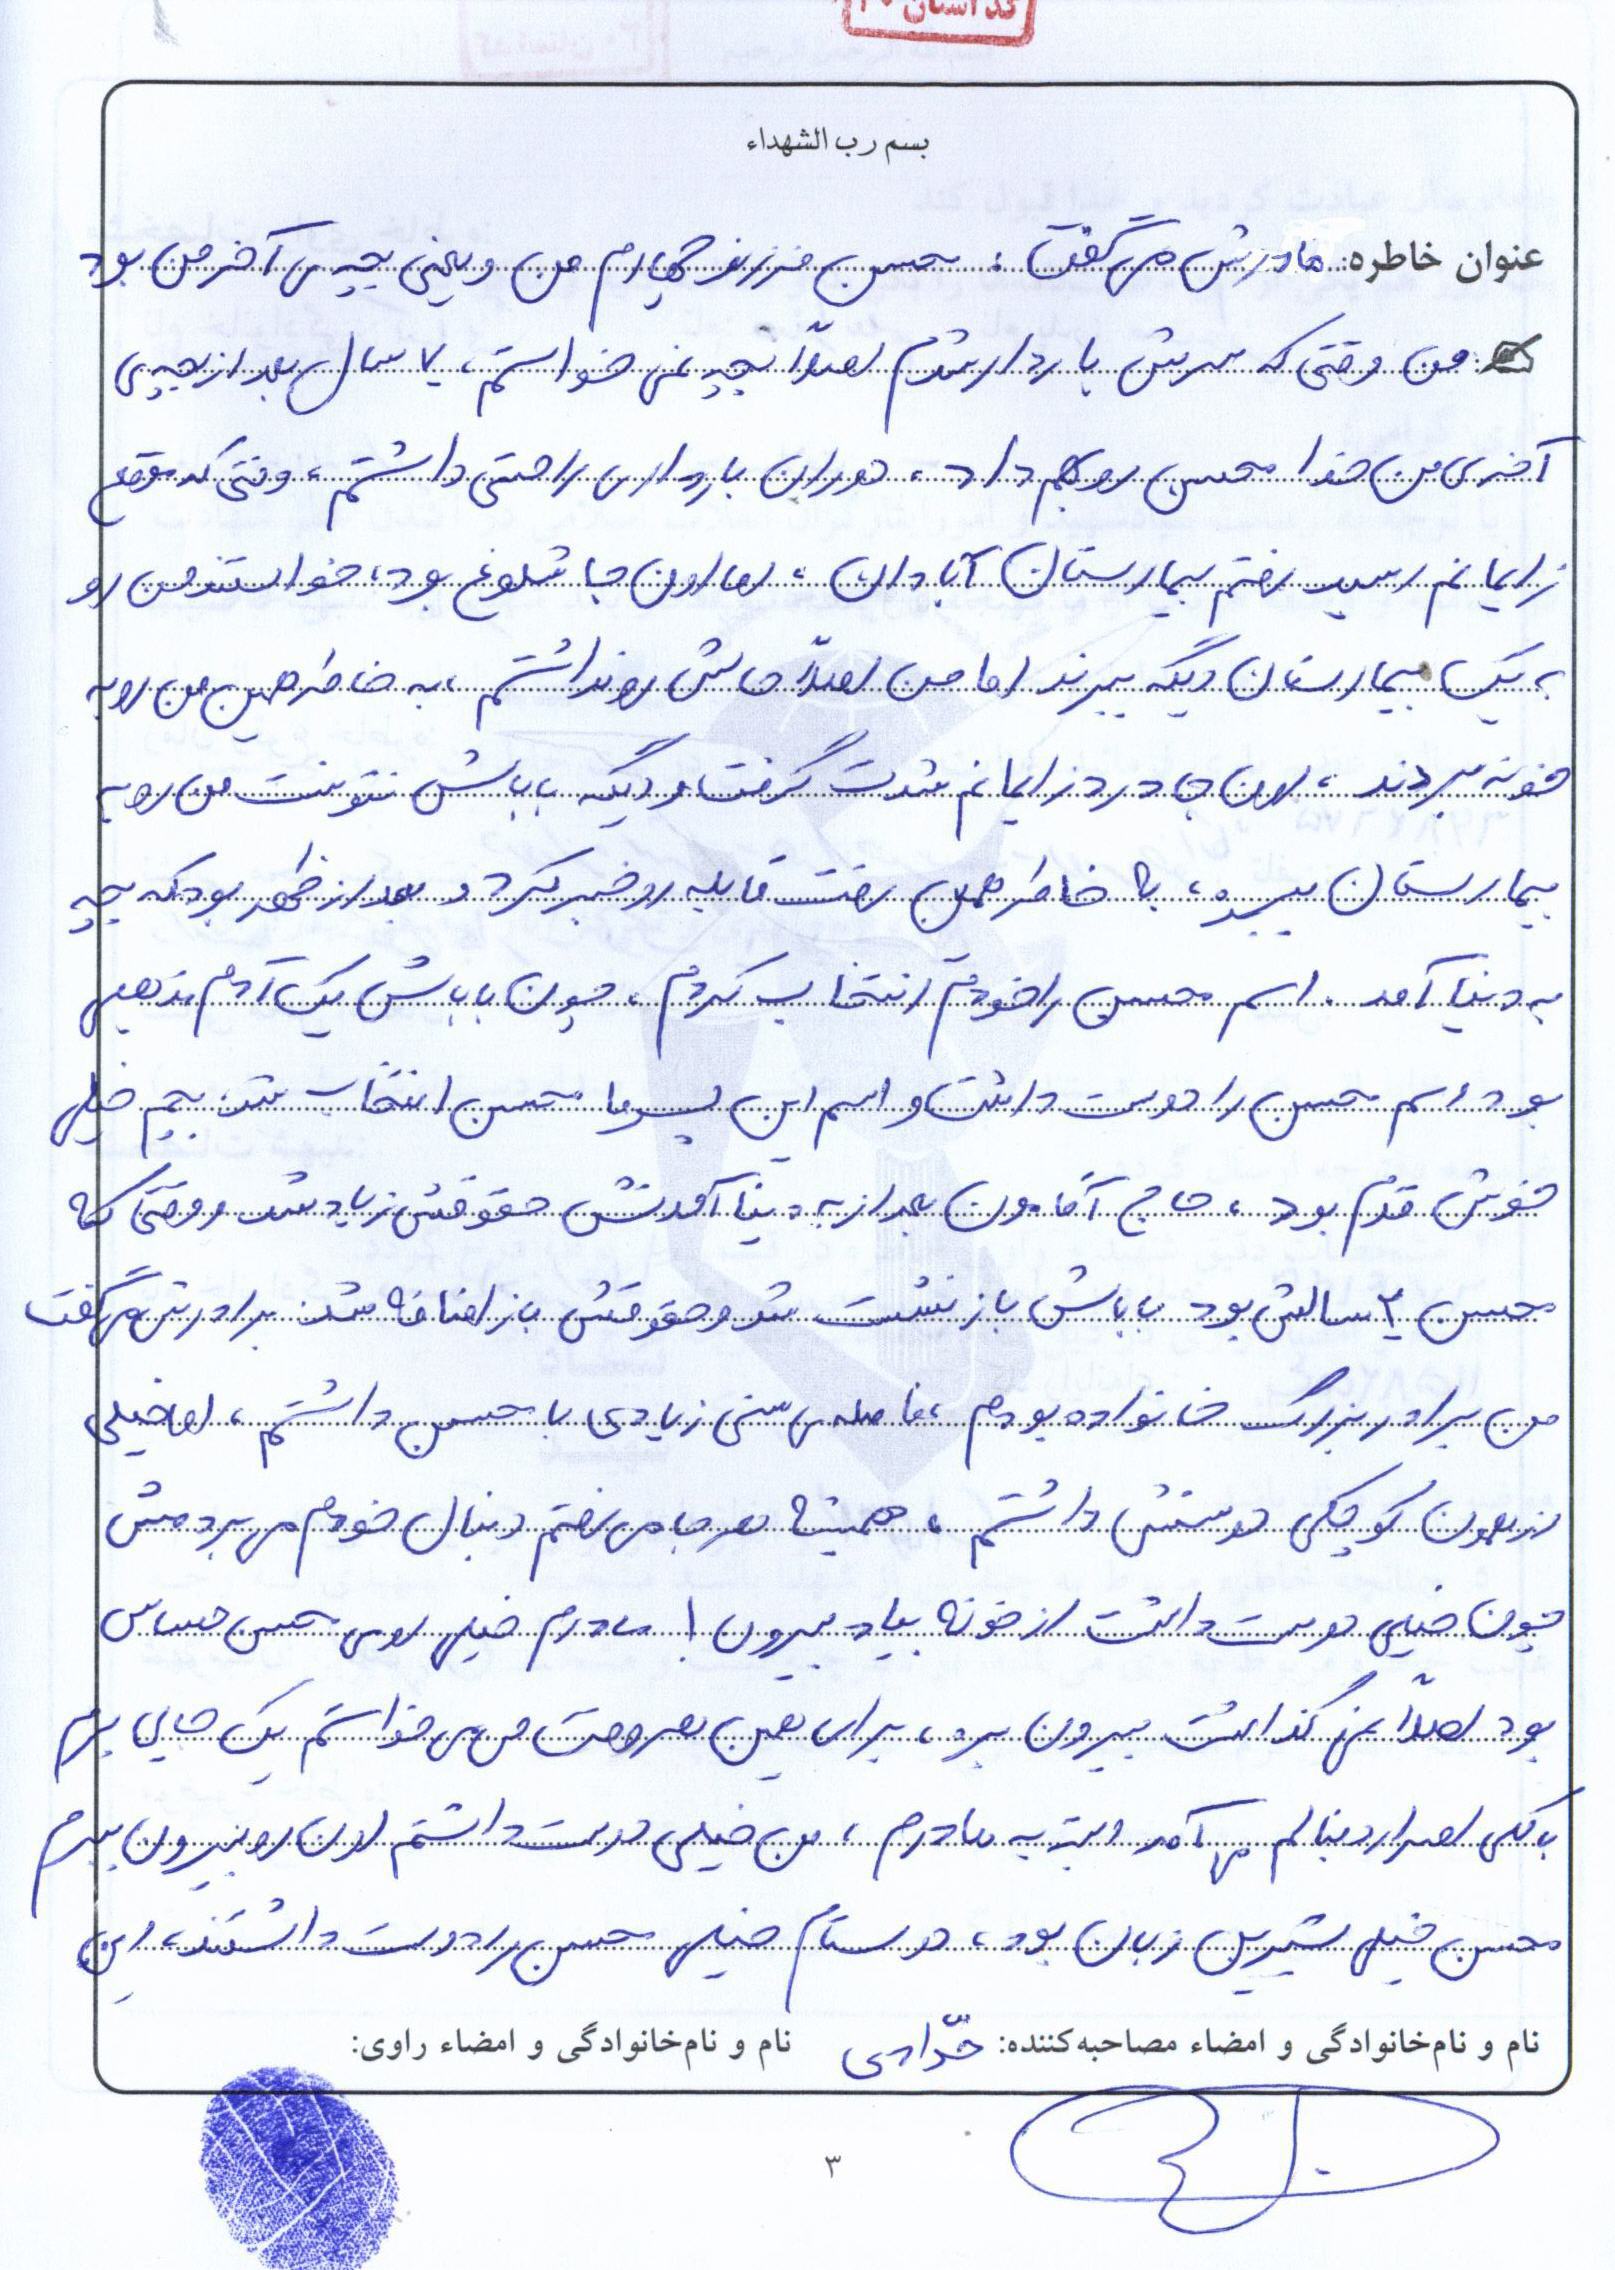 کد استان
بسم رب الشهداء
عنوان خاطره: مادرش می گفت: محسن فرزند چهارم من و یعنی بچه ی آخر من بود
من وقتی که سرش باردار شدم اصلاً بچه نمی خواستم، ۷ سال بعد از بچه ی
آخری من خدا محسن رو بهم داد، دوران بارداری راحتی داشتم، وقتی که موقع
زایمانم رسید رفتم بیمارستان آبادان، اما اون جا شلوغ بود، خواستند من رو
به یک بیمارستان دیگه ببرند اما من اصلاً حالش رو نداشتم، به خاطر همین من رو به
خونه بردند، اون جا درد زایمانم شدت گرفت و دیگه باباش نتونست من رو به
بیمارستان ببره، به خاطر همین رفت قابله رو خبر کرد و بعد از ظهر بود که بچه
به دنیا آمد. اسم محسن را خودم انتخاب کردم، چون باباش یک آدم مذهبی
بود اسم محسن را دوست داشت و اسم این پسر ما محسن انتخاب شد، بچم خیلی
خوش قدم بود، حاج آقامون بعد از به دنیا آمدنش حقوقش زیاد شد و وقتی که
محسن ۲ سالش بود باباش بازنشست شد و حقوقش باز اضافه شد. برادرش می گفت
من برادر بزرگ خانواده بودم، فاصله ی سنی زیادی با محسن داشتم، اما خیلی
از همون کوچکی دوستش داشتم، همیشه هر جا می رفتم دنبال خودم می بردمش
چون خیلی دوست داشت از خونه بیاد بیرون! مادرم خیلی روی محسن حساس
بود اصلاً نمی گذاشت بیرون بره، برای همین هر وقت من می خواستم یک جایی برم
با کلی اصرار دنبالم می آمد البته به مادرم، من خیلی دوست داشتم اون رو بیرون ببرم
محسن خیلی شیرین زبان بود، دوستام خیلی محسن را دوست داشتند، این
نام و نام‌خانوادگی و امضاء مصاحبه‌کننده: نام و نام‌خانوادگی و امضاء راوی:
۳